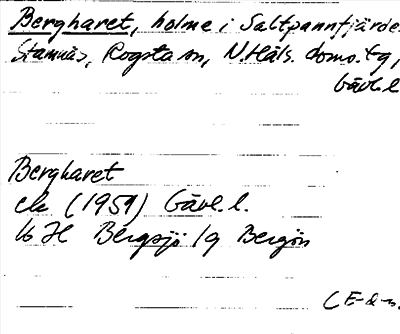 Bergharet, holme i Saltpannfjärde
Stamnäs, Rogsta sn, N. Häls. doms. tg,
Gävl. l
Bergharet
ek (1959) Gävl. l.
16 H Bergsjö 1g Bergön
(E-d-n.